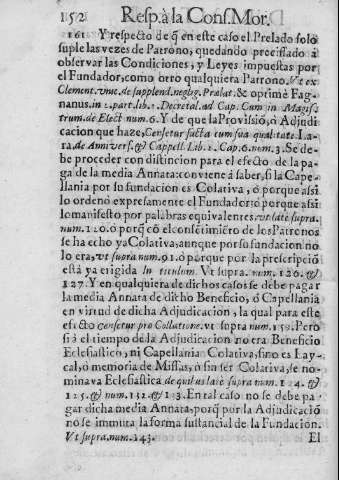 152 Resp. à la Cons. Mor.
161. Y respecto de q̃ en este caso el Prelado solo
suple las vezes de Patrono, quedando precissado à
observar las Condiciones, y Leyes impuestas por
el Fundador, como otro qualquiera Patrono. Vt ex
Clement. vnic. de supplend. neglig. Prælat. & optimè Fag-
nanus. in 2. part. lib. 1. Decretal. ad Cap. Cum in Magis-
trum. de Elect num. 6. Y de que la Provisiõ, ò Adjudi
cacion que haze, Censetur facta cum sua qualitate. La-
ra. de Annivers. & Cappell. Lib. 2. Cap. 6. num. 3. Se de-
be proceder con distincion para el efecto de la pa-
ga de la media Annata: conviene à saber, si la Capel-
lania por su fundacion es Colativa, ò porque assi
lo ordenò expresamente el Fundador: ò porque assi
lo manifesto por palabras equivalentes, vt latè supra.
num. 120. ò porq̃ cõ el consẽtimiẽto de los Patronos
se ha echo ya Colativa, aunque por su fundacion no
lo era, vt supra num. 91. ò porque por la prescripcion
està ya erigida In titulum. Vt supra. num. 126. &
127. Y en qualquiera de dichos casos se debe pagar
la media Annata de dicho Beneficio, ò Capellania
en virtud de dicha Adjudicacion, la qual para este
efecto censetur pro Collatione. vt supra num. 159. Pero
si à el tiempo de la Adjudicacion no era Beneficio
Eclesiastico, ni Capellania Colativa, sino es Lay-
cal, ò memoria de Missas, ò sin ser Colativa, se no-
minava Eclesiastica de quibus latè supra num. 124. &
125. & num. 132. & 133. En tal caso no se debe pa-
gar dicha media Annata, porq̃ por la Adjudicaciõ
no se immuta la forma sustancial de la Fundacion.
Vt supra. num. 143. El